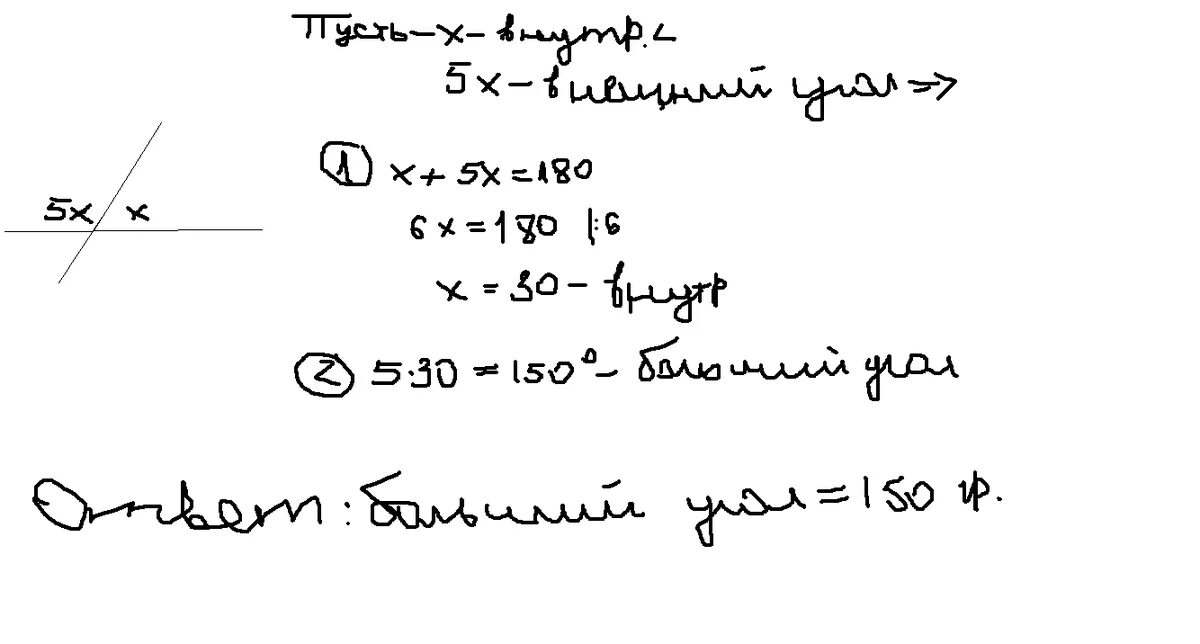 Пусть - x - внутр. <
5x - внешний угол =>
5x x
① x + 5x = 180
6x = 180 |:6
x = 30 - внутр
② 5·30 = 150° - больший угол
Ответ: больший угол = 150 гр.